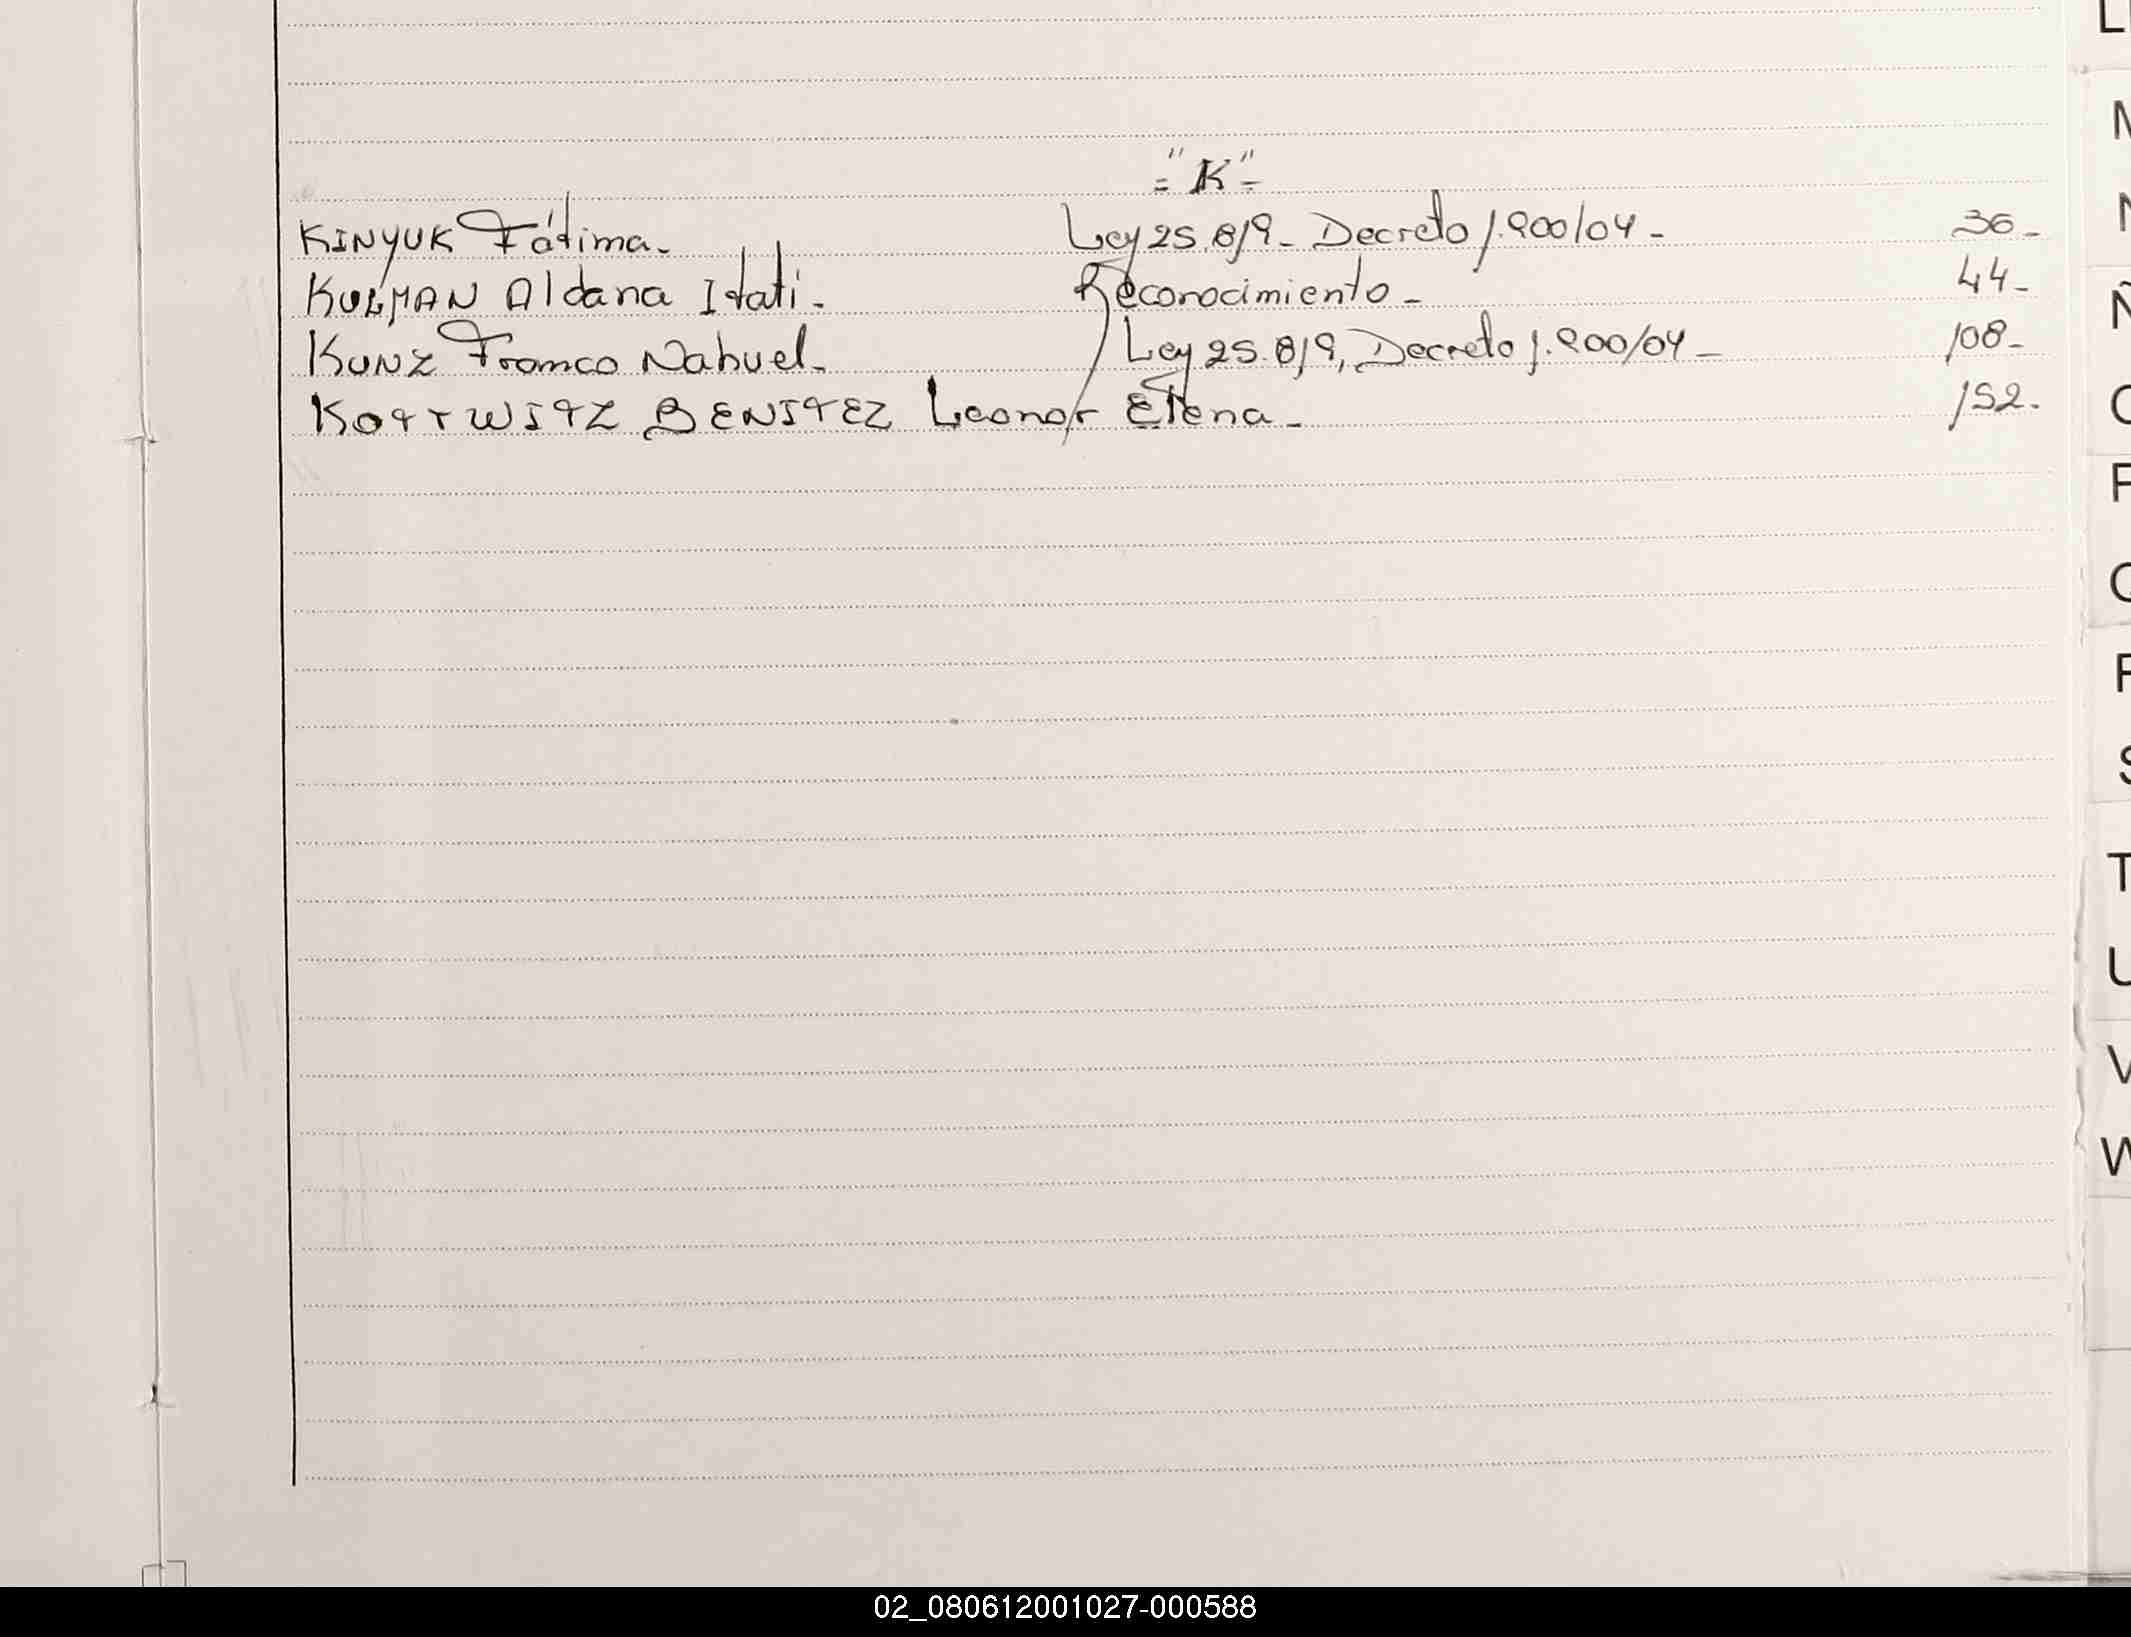 ="K"=
KINYUK Fátima. Ley 25.819 - Decreto 1.900/04 - 36 -
Aldana Itati. Reconocimiento - 44 -
KUNZ Franco Nahuel. Ley 25.819, Decreto 1.900/04 - 108 -
KOTTWITZ BENITEZ Leonor Elena - 152.
L
M
N
Ñ
O
P
Q
R
S
T
U
V
W
02_080612001027-000588